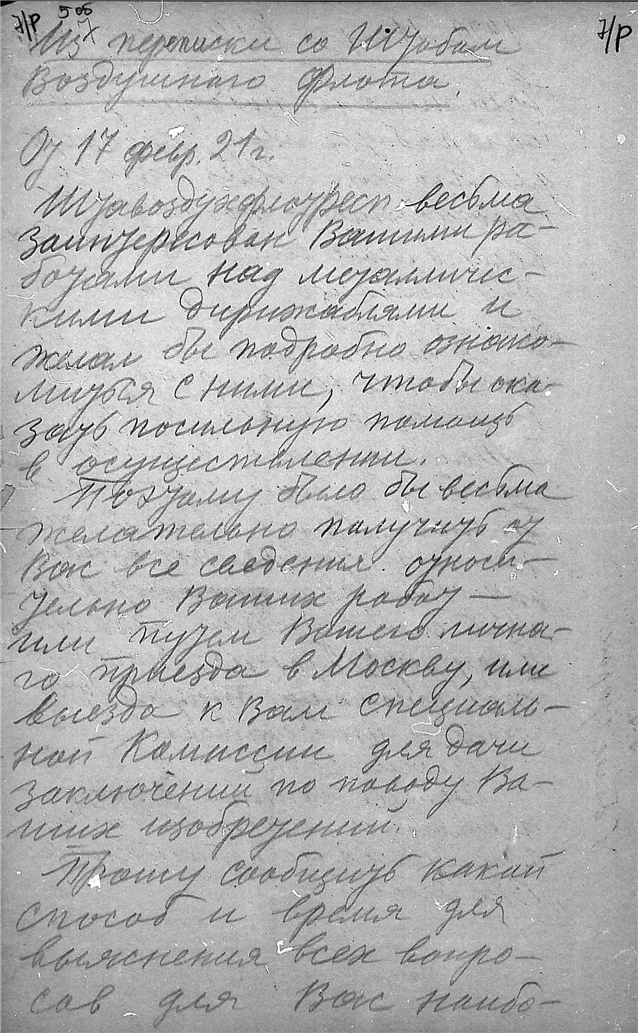 7/Р 505 7/Р
Из переписки со Штабом
Воздушнаго Флота.
От 17 февр. 21 г.
Штавоздухфлотресп весьма
заинтересован Вашими ра-
ботами над металличес-
кими дирижаблями и
желал бы подробно ознако-
миться с ними, чтобы ока-
зать посильную помощь
в осуществлении.
Поэтому было бы весьма
желательно получить от
Вас все сведения относи-
тельно Ваших работ —
или путем Вашего лична-
го приезда в Москву, или
выезда к Вам специаль-
ной Комиссии для дачи
заключений по поводу Ва-
ших изобретений.
Прошу сообщить какой
способ и время для
выяснения всех вопро-
сов для Вас наибо-